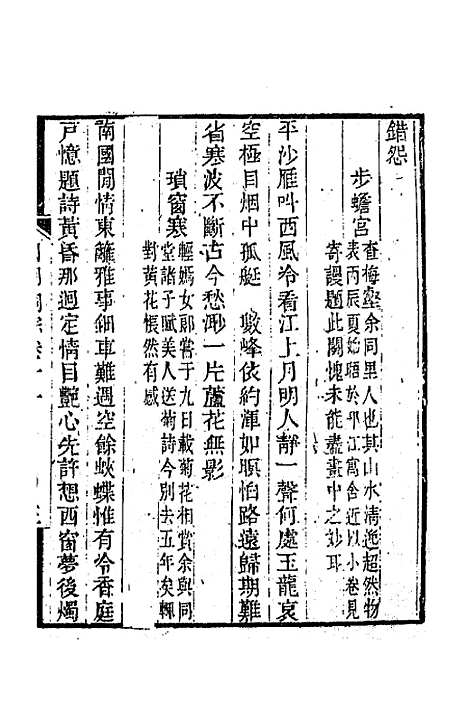 錯怨
步蟾宮
查梅壑余同里人也其山水清逸超然物
表丙辰夏始晤於邗江寓舍近以小卷見
寄謾題此闋愧未能盡畫中之妙耳
平沙雁叫西風冷看江上月明人靜一聲何處玉龍哀
空極目烟中孤艇 數峰依約渾如暝怕路遠歸期難
省寒波不斷古今愁渺一片蘆花無影
瑣窗寒
輕嫣女郎嘗于九日載菊花相賞余與同
堂諸子賦美人送菊詩今別去五年矣輒
對黃花悵然有感
南國閒情東籬雅事鈿車難遇空餘蛺蝶惟有令香庭
戸憶題詩黃昏那廻定情目艷心先許想西窗夢後燭